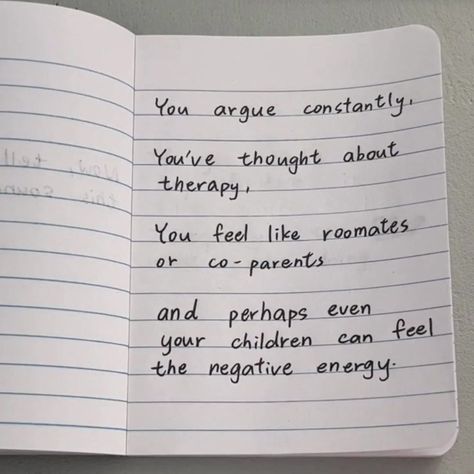 You argue constantly,
You've thought about
therapy,
You feel like roomates
or co-parents
and perhaps even
your children can feel
the negative energy.